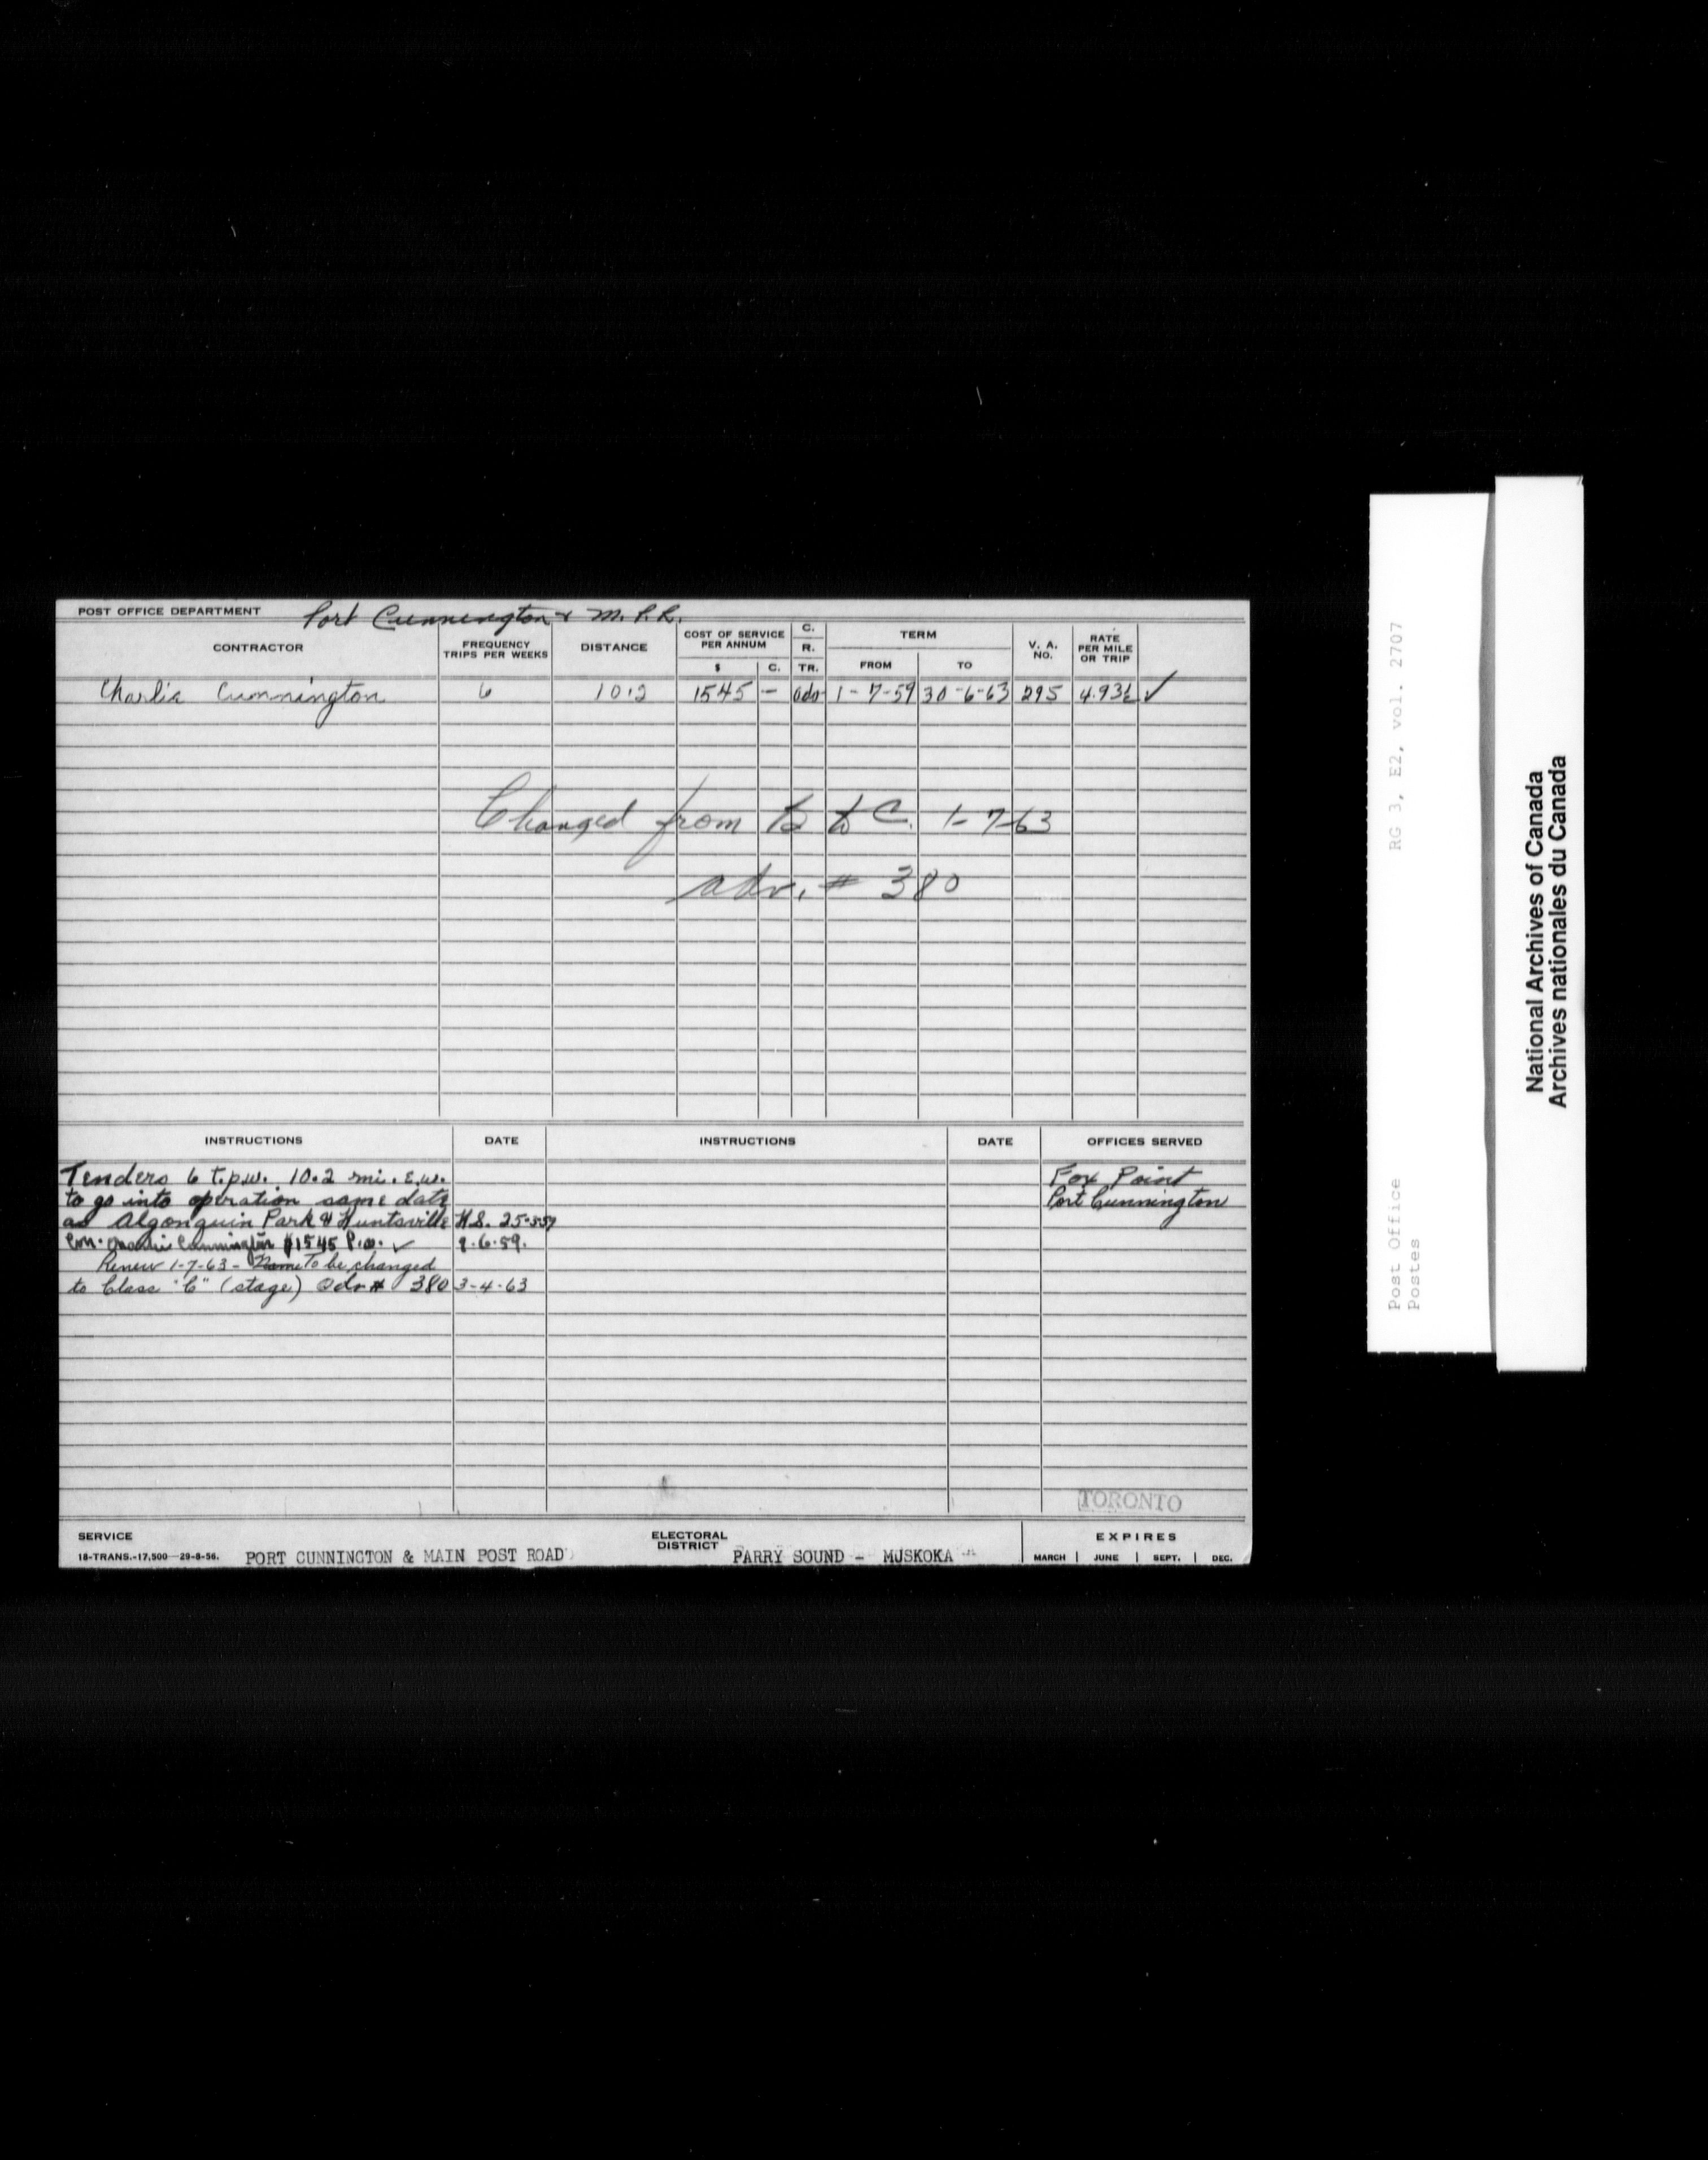 POST OFFICE DEPARTMENT Port Cunnington & M.P.R.
CONTRACTOR FREQUENCY TRIPS PER WEEKS DISTANCE COST OF SERVICE PER ANNUM $ C. C. R. TR. TERM FROM TO V. A. NO. RATE PER MILE OR TRIP
Charlie Cunnington 6 10.2 1545 — adv 1-7-59 30-6-63 295 4.93½ ✓
Changed from B to C. 1-7-63
adv. # 380
INSTRUCTIONS DATE INSTRUCTIONS DATE OFFICES SERVED
Tenders 6 t.p.w. 10.2 mi. E.W. Fox Point
to go into operation same date Port Cunnington
as Algonquin Park & Huntsville H.S. 25-3-59
Con. Charlie Cunnington $1545 P.a. ✓ 9.6.59.
Renew 1-7-63 - Name To be changed
to Class "C" (stage) Adv # 380 3-4-63
TORONTO
SERVICE ELECTORAL DISTRICT EXPIRES
18-TRANS.-17,500—29-8-56. PORT CUNNINGTON & MAIN POST ROAD PARRY SOUND - MUSKOKA MARCH | JUNE | SEPT. | DEC.
RG 3, E2, vol. 2707
Post Office
Postes
National Archives of Canada
Archives nationales du Canada